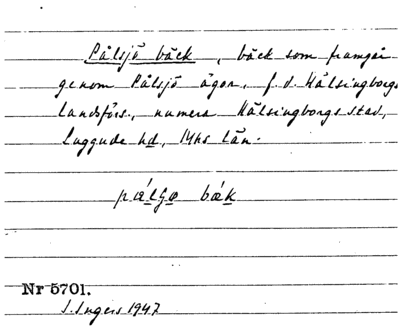 Pålsjö bäck, bäck som framgår
genom Pålsjö ägor, f.d. Hälsingborgs
landsförs., numera Hälsingborgs stad,
Luggude hd, Mhs län.
pǽlʃø bǽk
Nr 5701.
I. Ingers 1947